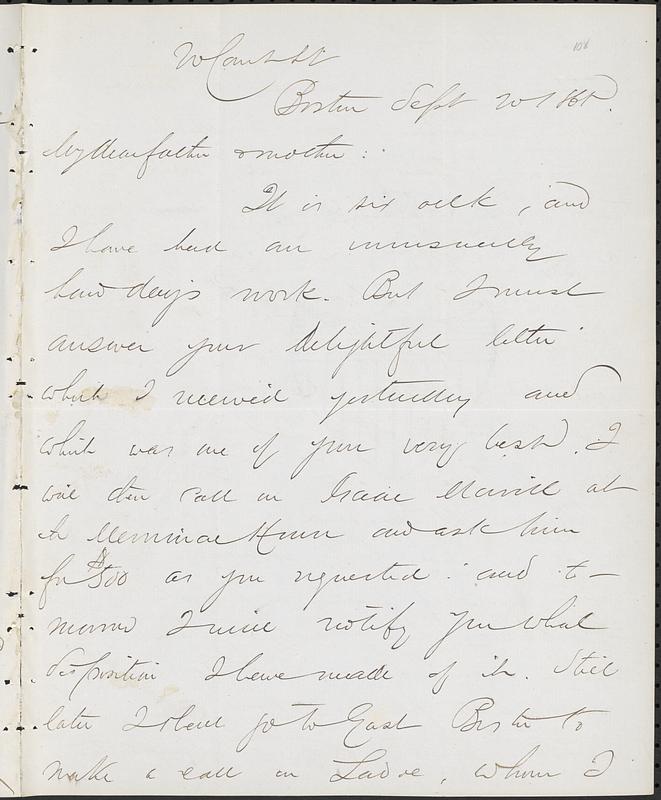 106
20 Court St
Boston Sept 20 186
My dear father & mother:
It is six oclk, and
I have had an unusually
hard day's work. But I must
answer your delightful letter
which I received yesterday and
which was one of your very best. I
will then call on Isaac Morrill at
the Merrimac House and ask him
for $500 as you requested: and to-
morrow I will notify you what
disposition I have made of it. Still
later I shall go to East Boston to
make a call on, whom I